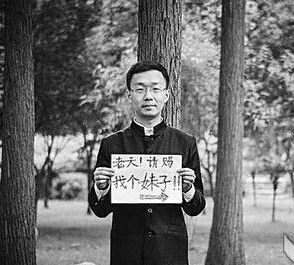 老天！请赐
我个妹子!!